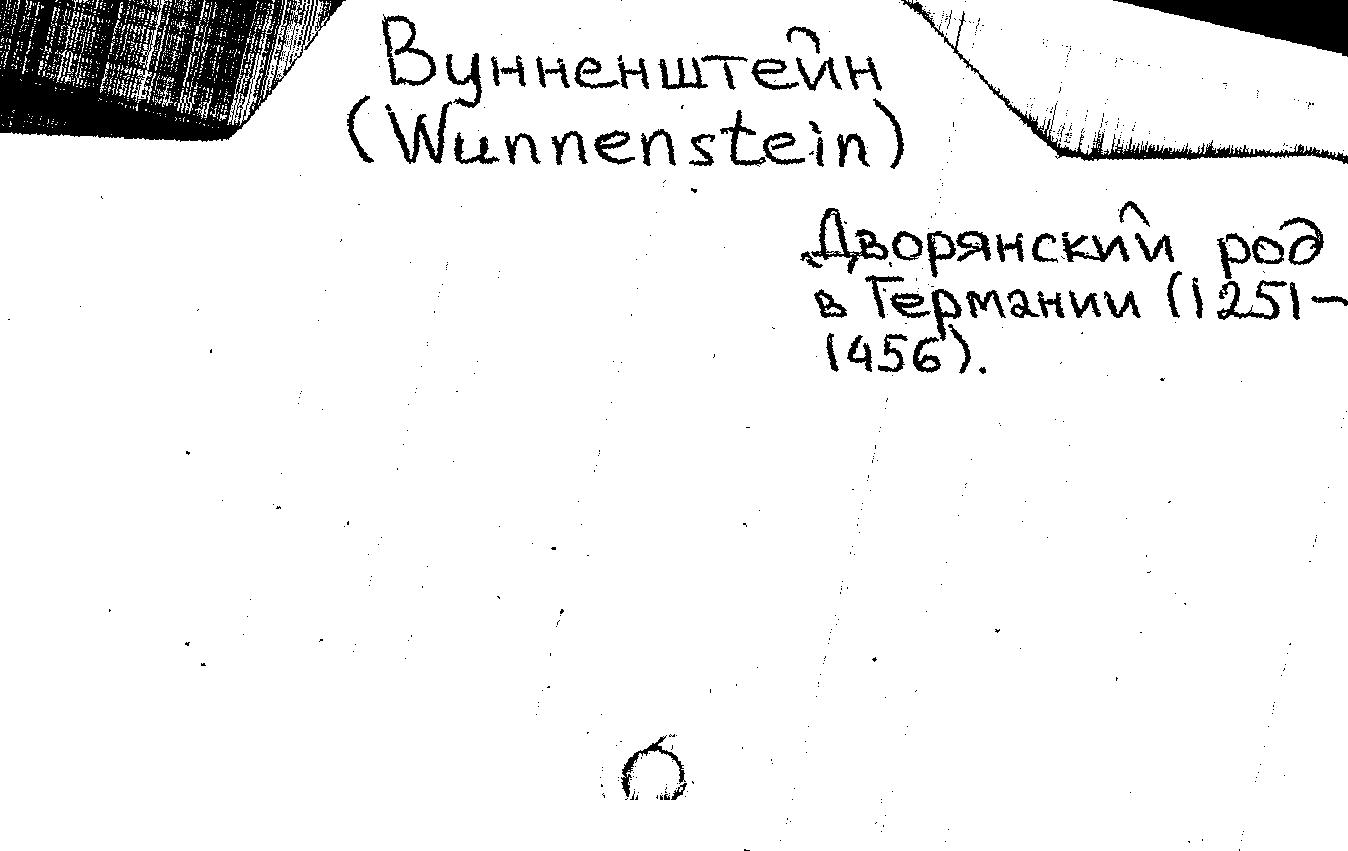 Вунненштейн
(Wunnenstein)
Дворянский род
в Германии (1251–
1456).